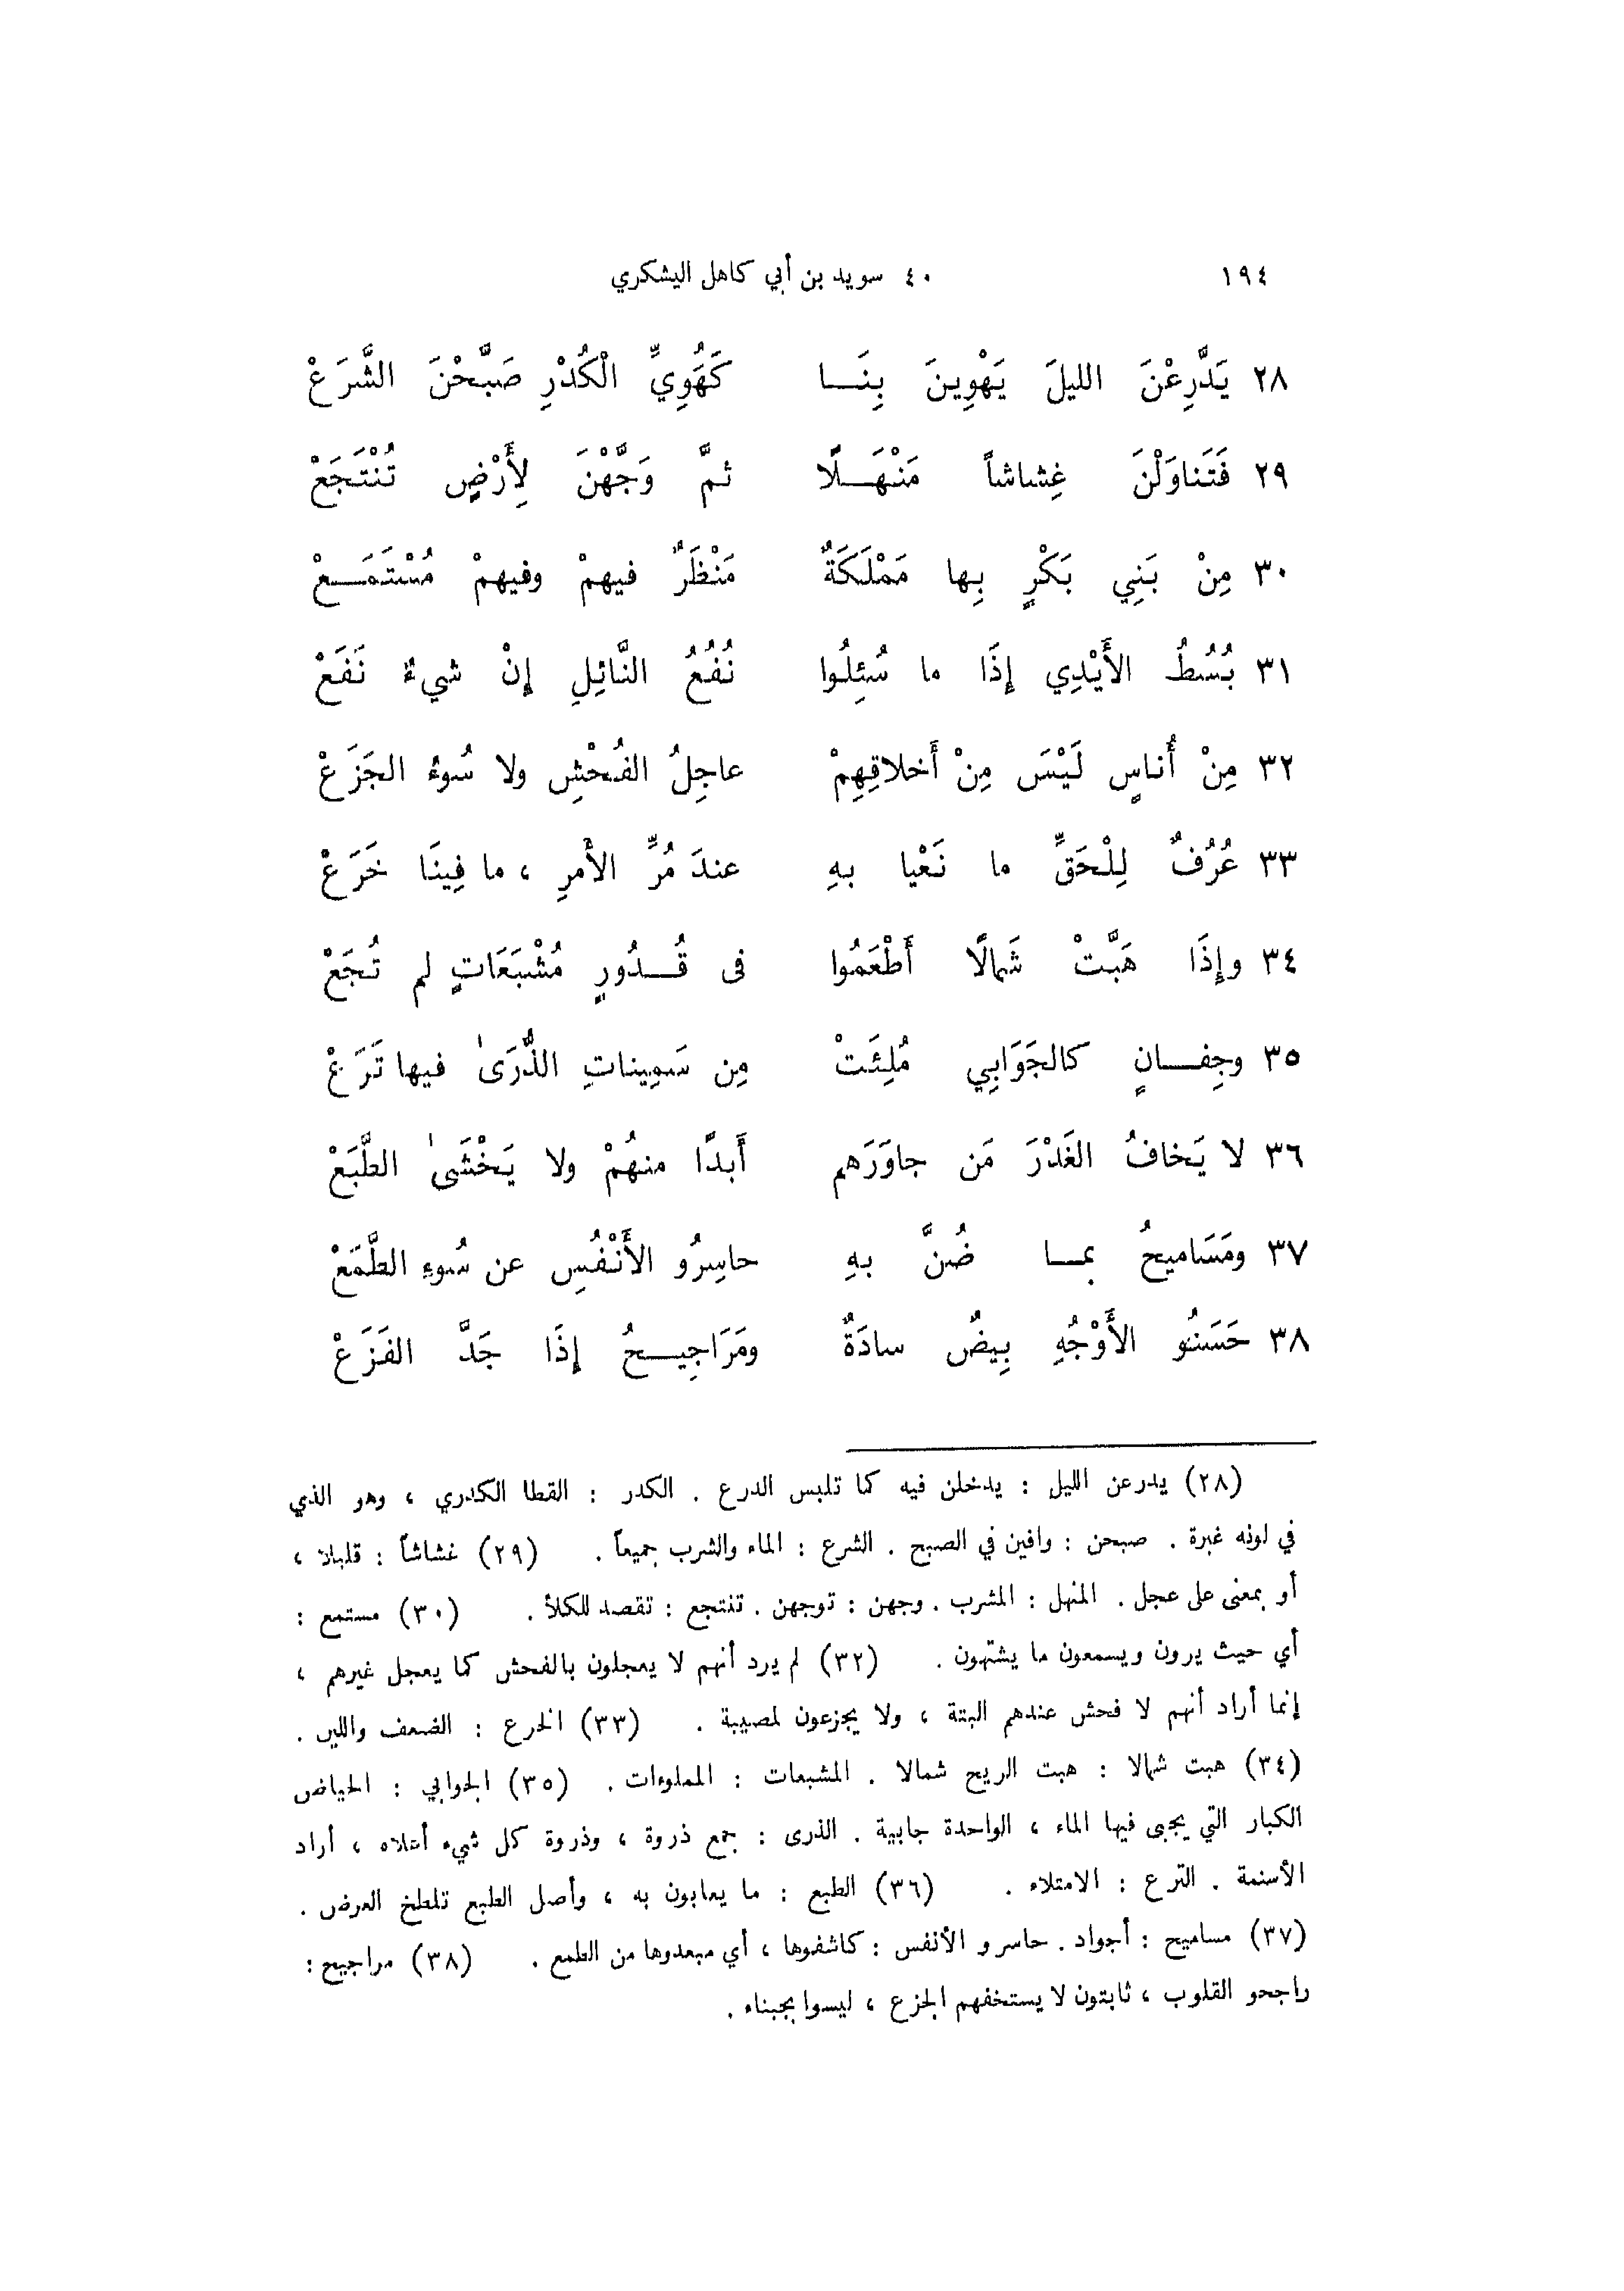 ١٩٤ ٤٠ سويد بن أبي كاهل اليشكري
٢٨ يَدَّرِعْنَ الليلَ يَهْوِينَ بِنَا كَهُوِيِّ الْكُدْرِ صَبَّحْنَ الشَّرَعْ
٢٩ فَتَناوَلْنَ غِشاشاً مَنْهَلًا ثمَّ وَجَّهْنَ لِأَرْضٍ تُنْتَجَعْ
٣٠ مِنْ بَنِي بَكْرٍ بِها مَمْلَكَةٌ مَنْظَرٌ فيهمْ وفيهمْ مُسْتَمَعْ
٣١ بُسُطُ الأَيْدِي إِذَا ما سُئِلُوا نُفُعُ النَّائِلِ إِنْ شيءٌ نَفَعْ
٣٢ مِنْ أُناسٍ لَيْسَ مِنْ أَخلاقِهِمْ عاجِلُ الفُحْشِ ولا سُوءُ الجَزَعْ
٣٣ عُرُفٌ لِلْحَقِّ ما نَعْيا بهِ عندَ مُرِّ الأَمرِ ، ما فِينَا خَرَعْ
٣٤ وإِذَا هَبَّتْ شَمالًا أَطْعَمُوا فى قُدُورٍ مُشْبَعَاتٍ لم تُجَعْ
٣٥ وجِفانٍ كالجَوَابِي مُلِئَتْ مِن سَمِيناتِ الذُّرَىٰ فيها تَرَعْ
٣٦ لا يَخافُ الغَدْرَ مَن جاوَرَهم أَبدًا منهُمْ ولا يَخْشَىٰ الطَّبَعْ
٣٧ ومَسَاميحُ بما ضُنَّ بهِ حاسِرُو الأَنْفُسِ عن سُوءِ الطَّمَعْ
٣٨ حَسَنُو الأَوْجُهِ بِيضٌ سادَةٌ ومَرَاجِيحُ إِذَا جَدَّ الفَزَعْ
(٢٨) يدرعن الليل : يدخلن فيه كما تلبس الدرع . الكدر : القطا الكدري ، وهو الذي
في لونه غبرة . صبحن : وافين في الصبح . الشرع : الماء والشرب جميعاً . (٢٩) غشاشاً : قليلا ،
أو بمعنى على عجل . المنهل : المشرب . وجهن : توجهن . تنتجع : تقصد للكلأ . (٣٠) مستمع :
أي حيث يرون ويسمعون ما يشتهون . (٣٢) لم يرد أنهم لا يعجلون بالفحش كما يعجل غيرهم ،
إنما أراد أنهم لا فحش عندهم البتة ، ولا يجزعون لمصيبة . (٣٣) الخرع : الضعف واللين .
(٣٤) هبت شمالا : هبت الريح شمالا . المشبعات : المملوءات . (٣٥) الجوابي : الحياض
الكبار التي يجبى فيها الماء ، الواحدة جابية . الذرى : جمع ذروة ، وذروة كل شيء أعلاه ، أراد
الأسنمة . الترع : الامتلاء . (٣٦) الطبع : ما يعابون به ، وأصل الطبع تلطخ العرض .
(٣٧) مساميح : أجواد . حاسرو الأنفس : كاشفوها ، أي مبعدوها من الطمع . (٣٨) مراجيح :
راجحو القلوب ، ثابتون لا يستخفهم الجزع ، ليسوا بجبناء .